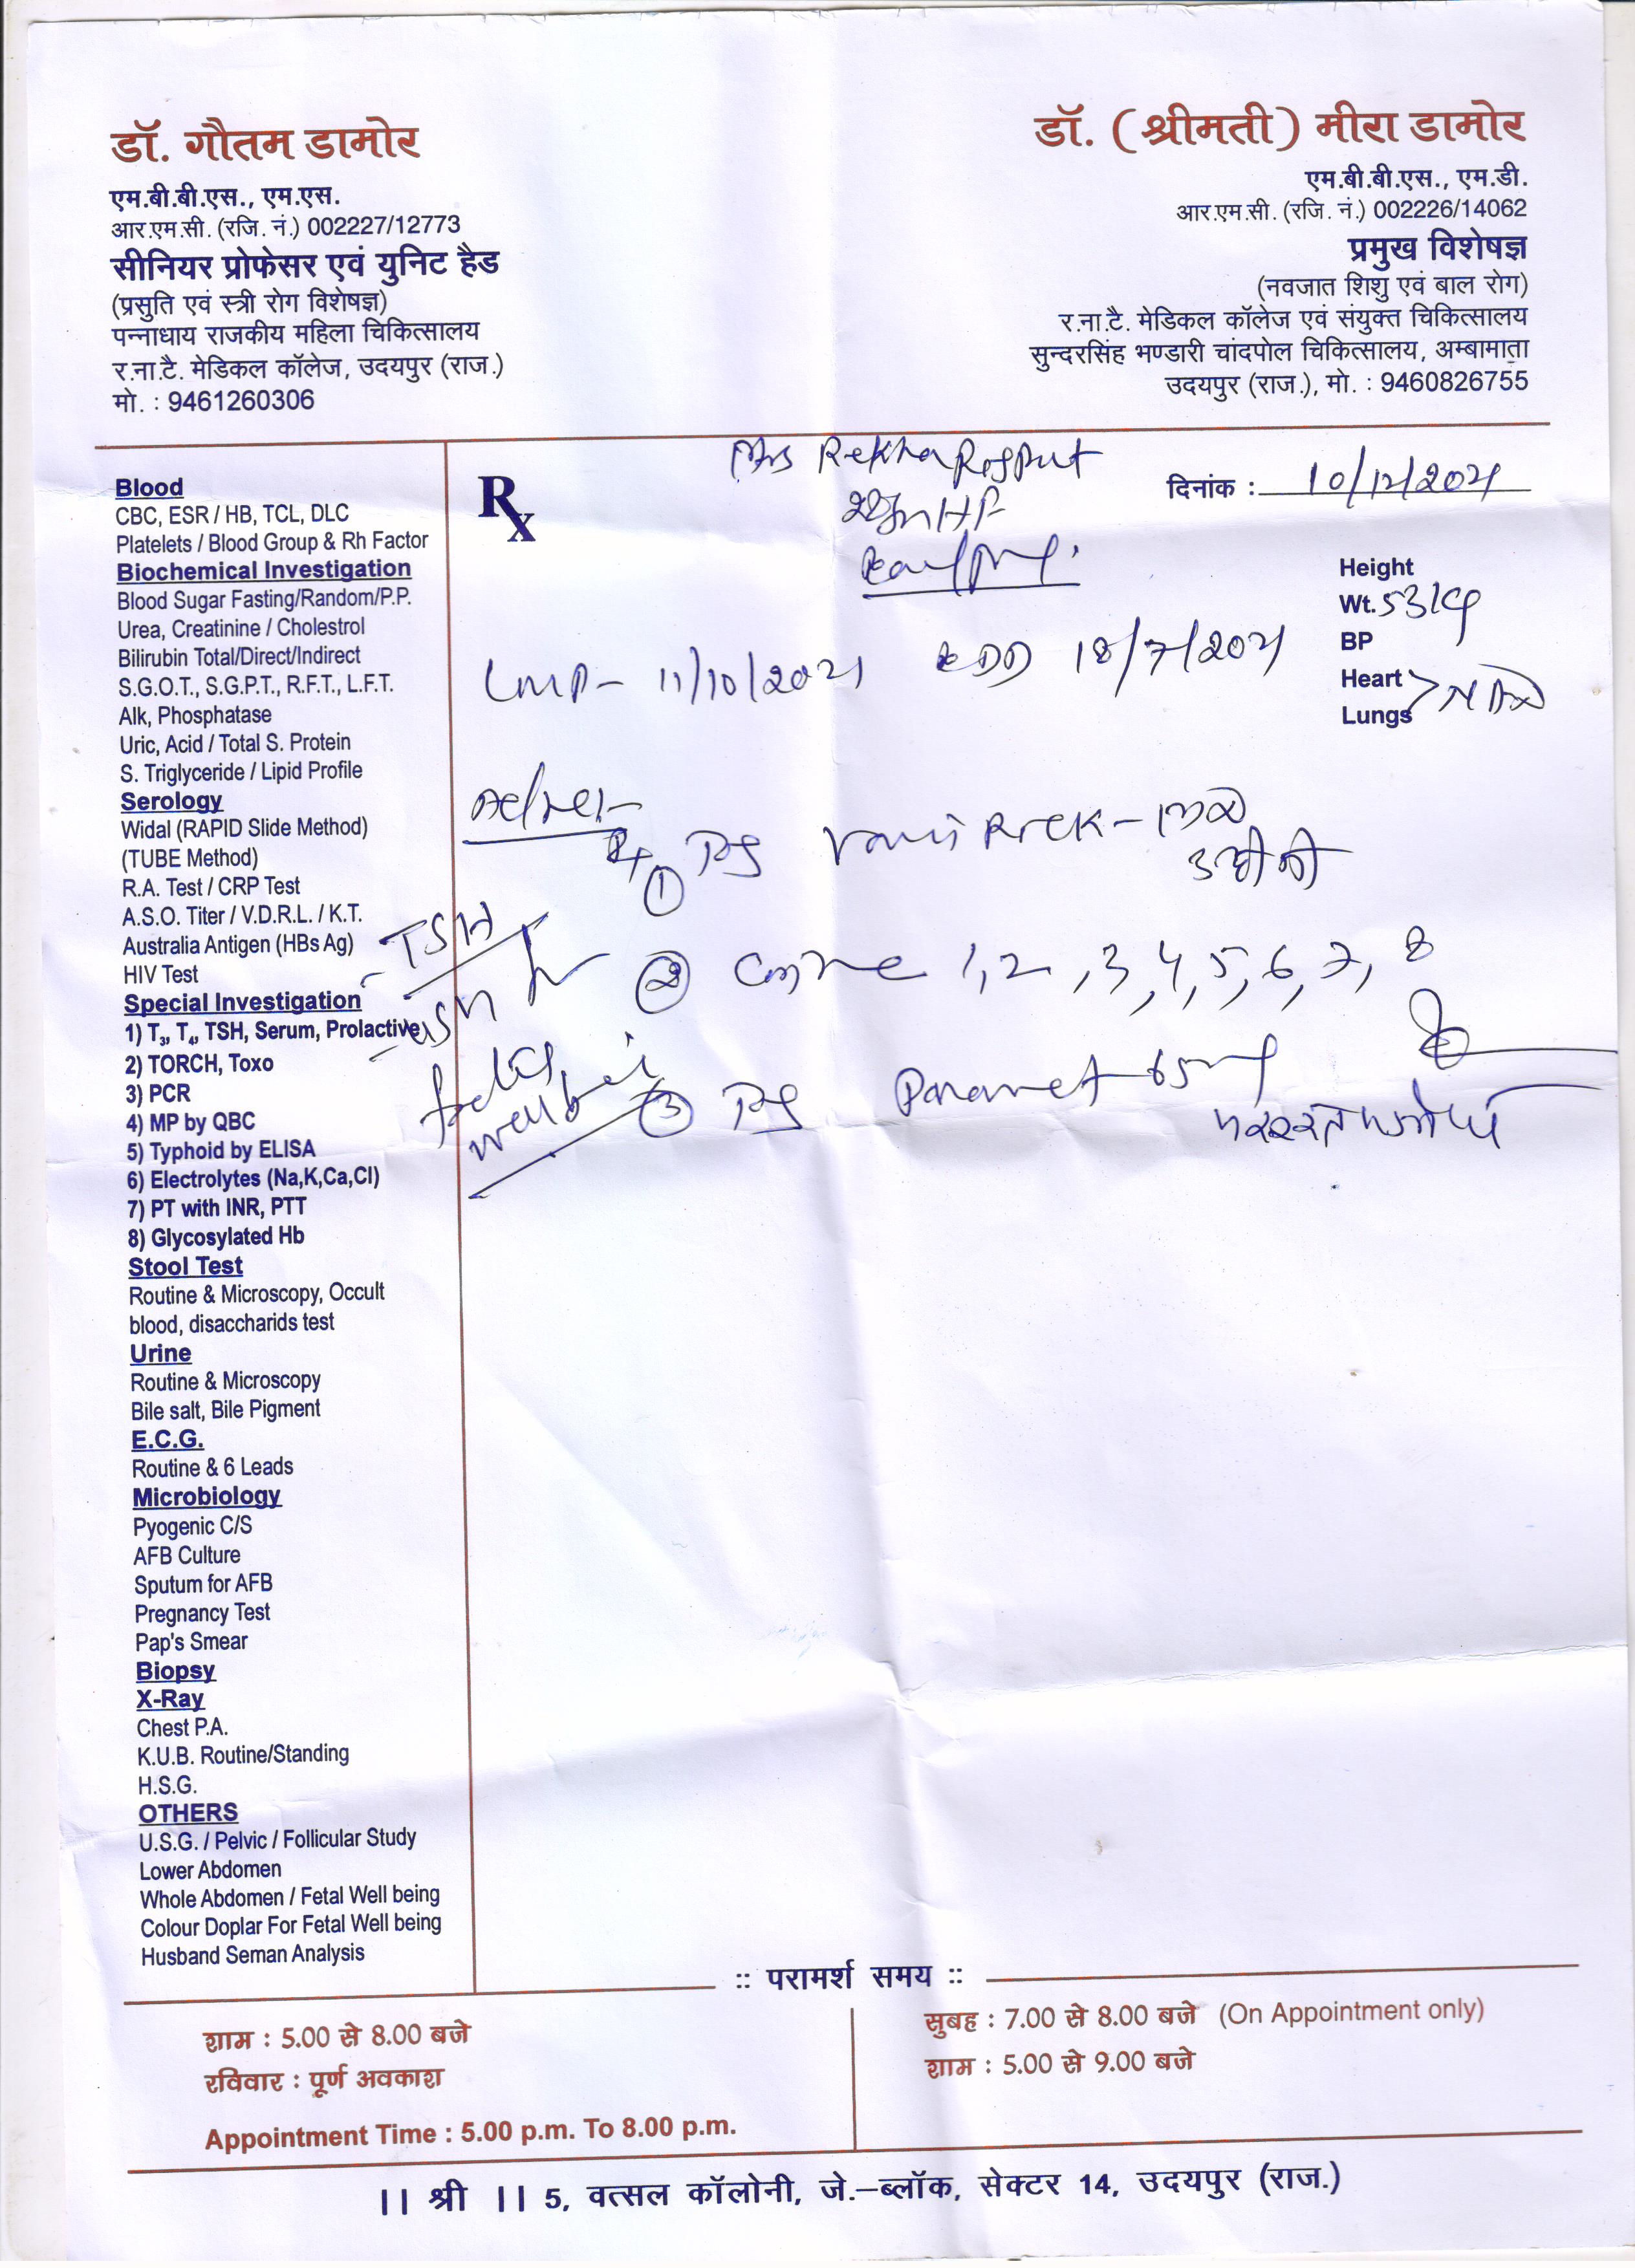 डॉ. गौतम डामोर
एम.बी.बी.एस., एम.एस.
आर.एम.सी. (रजि. नं.) 002227/12773
सीनियर प्रोफेसर एवं युनिट हैड
(प्रसुति एवं स्त्री रोग विशेषज्ञ)
पन्नाधाय राजकीय महिला चिकित्सालय
र.ना.टै. मेडिकल कॉलेज, उदयपुर (राज.)
मो. : 9461260306
डॉ. (श्रीमती) मीरा डामोर
एम.बी.बी.एस., एम.डी.
आर.एम.सी. (रजि. नं.) 002226/14062
प्रमुख विशेषज्ञ
(नवजात शिशु एवं बाल रोग)
र.ना.टै. मेडिकल कॉलेज एवं संयुक्त चिकित्सालय
सुन्दरसिंह भण्डारी चांदपोल चिकित्सालय, अम्बामाता
उदयपुर (राज.), मो. : 9460826755
Blood
CBC, ESR / HB, TCL, DLC
Platelets / Blood Group & Rh Factor
Biochemical Investigation
Blood Sugar Fasting/Random/P.P.
Urea, Creatinine / Cholestrol
Bilirubin Total/Direct/Indirect
S.G.O.T., S.G.P.T., R.F.T., L.F.T.
Alk, Phosphatase
Uric, Acid / Total S. Protein
S. Triglyceride / Lipid Profile
Serology
Widal (RAPID Slide Method)
(TUBE Method)
R.A. Test / CRP Test
A.S.O. Titer / V.D.R.L. / K.T.
Australia Antigen (HBs Ag)
HIV Test
Special Investigation
1) T₃, T₄, TSH, Serum, Prolactive
2) TORCH, Toxo
3) PCR
4) MP by QBC
5) Typhoid by ELISA
6) Electrolytes (Na,K,Ca,Cl)
7) PT with INR, PTT
8) Glycosylated Hb
Stool Test
Routine & Microscopy, Occult
blood, disaccharids test
Urine
Routine & Microscopy
Bile salt, Bile Pigment
E.C.G.
Routine & 6 Leads
Microbiology
Pyogenic C/S
AFB Culture
Sputum for AFB
Pregnancy Test
Pap's Smear
Biopsy
X-Ray
Chest P.A.
K.U.B. Routine/Standing
H.S.G.
OTHERS
U.S.G. / Pelvic / Follicular Study
Lower Abdomen
Whole Abdomen / Fetal Well being
Colour Doplar For Fetal Well being
Husband Seman Analysis
Rx
Mrs Rekha Rajput
दिनांक : 10/12/2021
Height
Wt. 53 kg
BP
Heart
Lungs > NAD
LMP - 11/10/2021 EDD 18/7/202
①
TSH
② 1, 2, 3, 4, 5, 6, 7, 8
③
:: परामर्श समय ::
शाम : 5.00 से 8.00 बजे
रविवार : पूर्ण अवकाश
Appointment Time : 5.00 p.m. To 8.00 p.m.
सुबह : 7.00 से 8.00 बजे (On Appointment only)
शाम : 5.00 से 9.00 बजे
|| श्री || 5, वत्सल कॉलोनी, जे.-ब्लॉक, सेक्टर 14, उदयपुर (राज.)